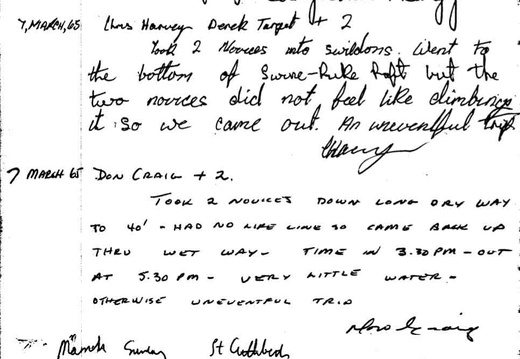 7, MARCH, 65 Chris Harvey Derek Target + 2
Took 2 Novices into swildons. Went to
the bottom of but the
two novices did not feel like climbing
it so we came out. An uneventful trip
CHarvey
7 MARCH 65 DON CRAIG + 2.
TOOK 2 NOVICES DOWN LONG DRY WAY
TO 40' - HAD NO LIFE LINE SO CAME BACK UP
THRU WET WAY - TIME IN 3.30 PM - OUT
AT 5.30 PM - VERY LITTLE WATER -
OTHERWISE UNEVENTFUL TRIP
Don Craig
Sunday St Cuthberts